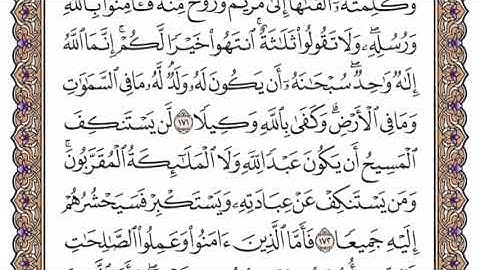 وَكَلِمَتُهُۥٓ أَلْقَىٰهَآ إِلَىٰ مَرْيَمَ وَرُوحٌ مِّنْهُ فَـَٔامِنُوا۟ بِٱللَّهِ
وَرُسُلِهِۦ وَلَا تَقُولُوا۟ ثَلَـٰثَةٌ ٱنتَهُوا۟ خَيْرًا لَّكُمْ إِنَّمَا ٱللَّهُ
إِلَـٰهٌ وَٰحِدٌ سُبْحَـٰنَهُۥٓ أَن يَكُونَ لَهُۥ وَلَدٌ لَّهُۥ مَا فِى ٱلسَّمَـٰوَٰتِ
وَمَا فِى ٱلْأَرْضِ وَكَفَىٰ بِٱللَّهِ وَكِيلًا ١٧١ لَّن يَسْتَنكِفَ
ٱلْمَسِيحُ أَن يَكُونَ عَبْدًا لِّلَّهِ وَلَا ٱلْمَلَـٰٓئِكَةُ ٱلْمُقَرَّبُونَ
وَمَن يَسْتَنكِفْ عَنْ عِبَادَتِهِۦ وَيَسْتَكْبِرْ فَسَيَحْشُرُهُمْ
إِلَيْهِ جَمِيعًا ١٧٢ فَأَمَّا ٱلَّذِينَ ءَامَنُوا۟ وَعَمِلُوا۟ ٱلصَّـٰلِحَـٰتِ